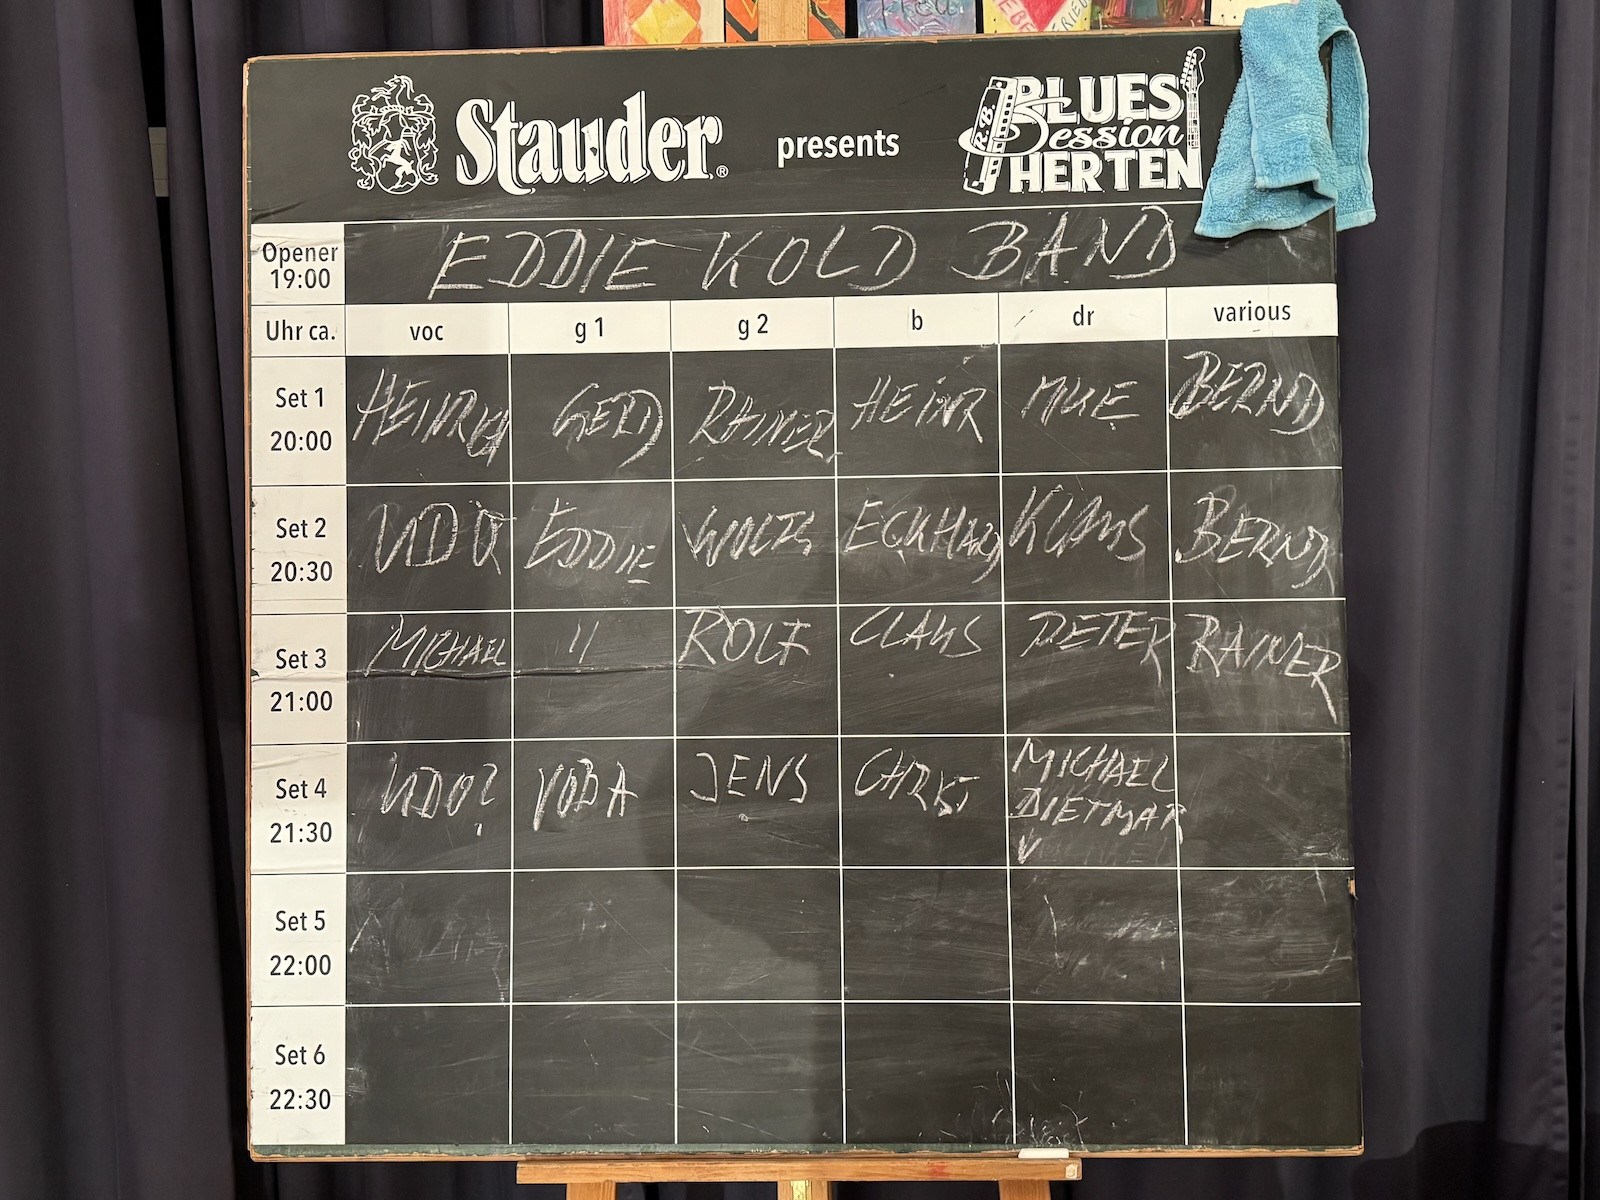 Stauder®
presents
R.B.
BLUES
Session
HERTEN
Opener
19:00
EDDIE KOLD BAND
Uhr ca.
voc
g 1
g 2
b
dr
various
Set 1
20:00
HEINRICH
GERD
RAINER
HEINR
MIKE
BERND
Set 2
20:30
UDO
EDDIE
WOLFG
ECKHARD
KLAUS
BERND
Set 3
21:00
MICHAEL
"
ROLF
CLAUS
PETER
RAINER
Set 4
21:30
UDO?
VOBA
JENS
CHRIST
MICHAEL
DIETMAR
Set 5
22:00
Set 6
22:30